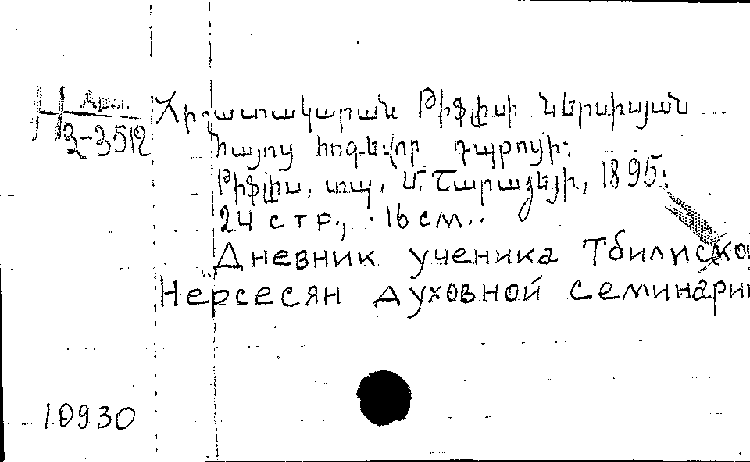 Арм.
З-3512
Հիշատակարան Թիֆլիսի Ներսիսյան
հայոց հոգևոր դպրոցի:
Թիֆլիս, տպ. Մ. Շարաձեյի, 1895:
24 стр., 16 см.
Дневник ученика Тбилиско
Нерсесян духовной семинарии
10930